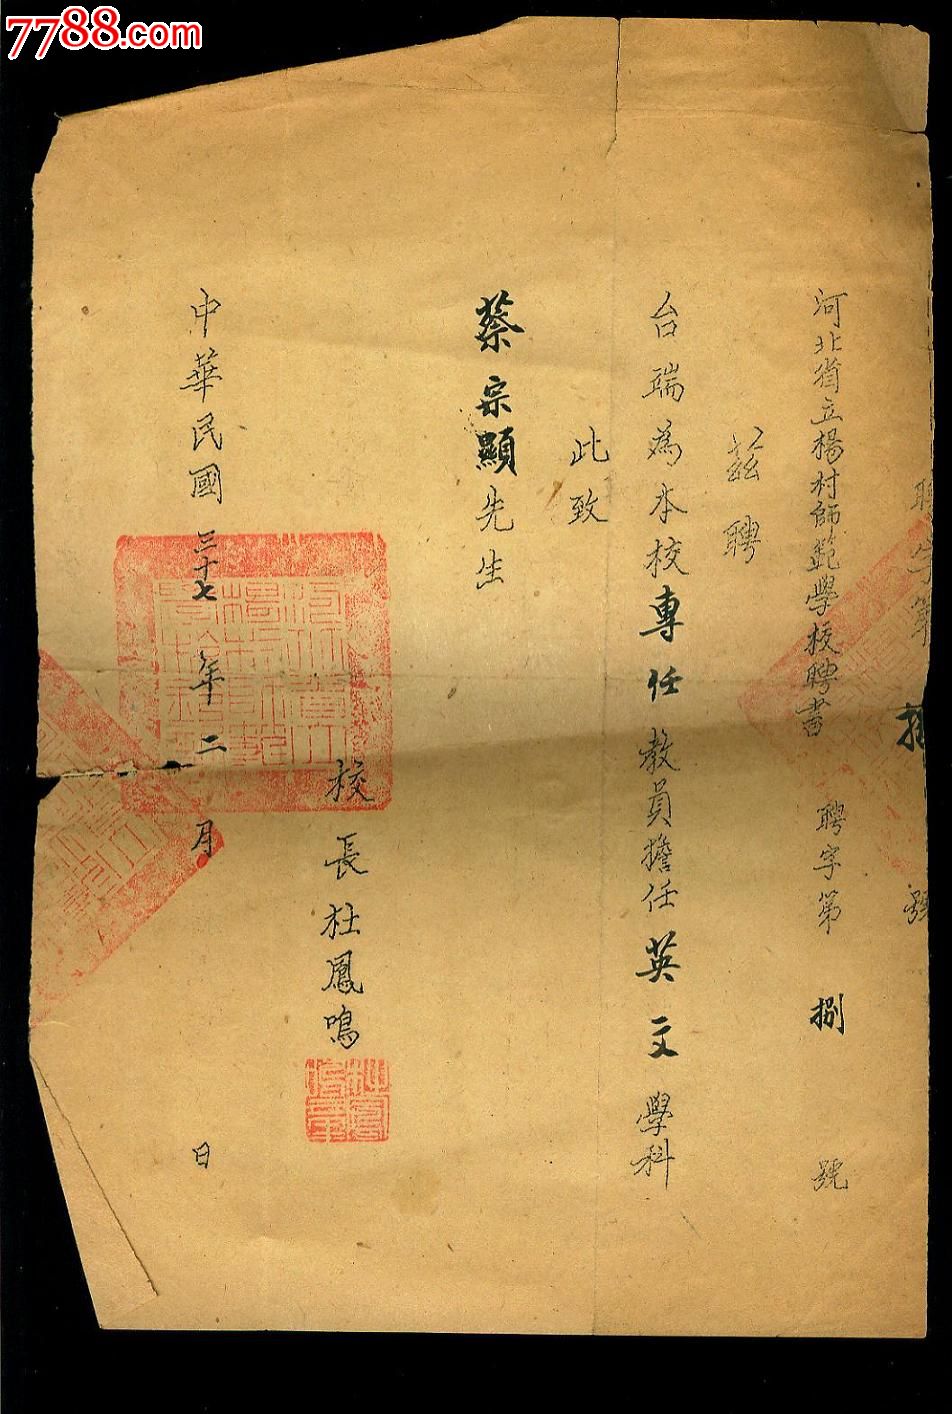 7788.com
聘字第
號
河北省立楊村師範學校聘書 聘字第 捌 號
茲聘
台瑞為本校專任教員擔任英文學科
此致
蔡宗顯先生
校長杜鳳鳴
中華民國三十七年二月 日